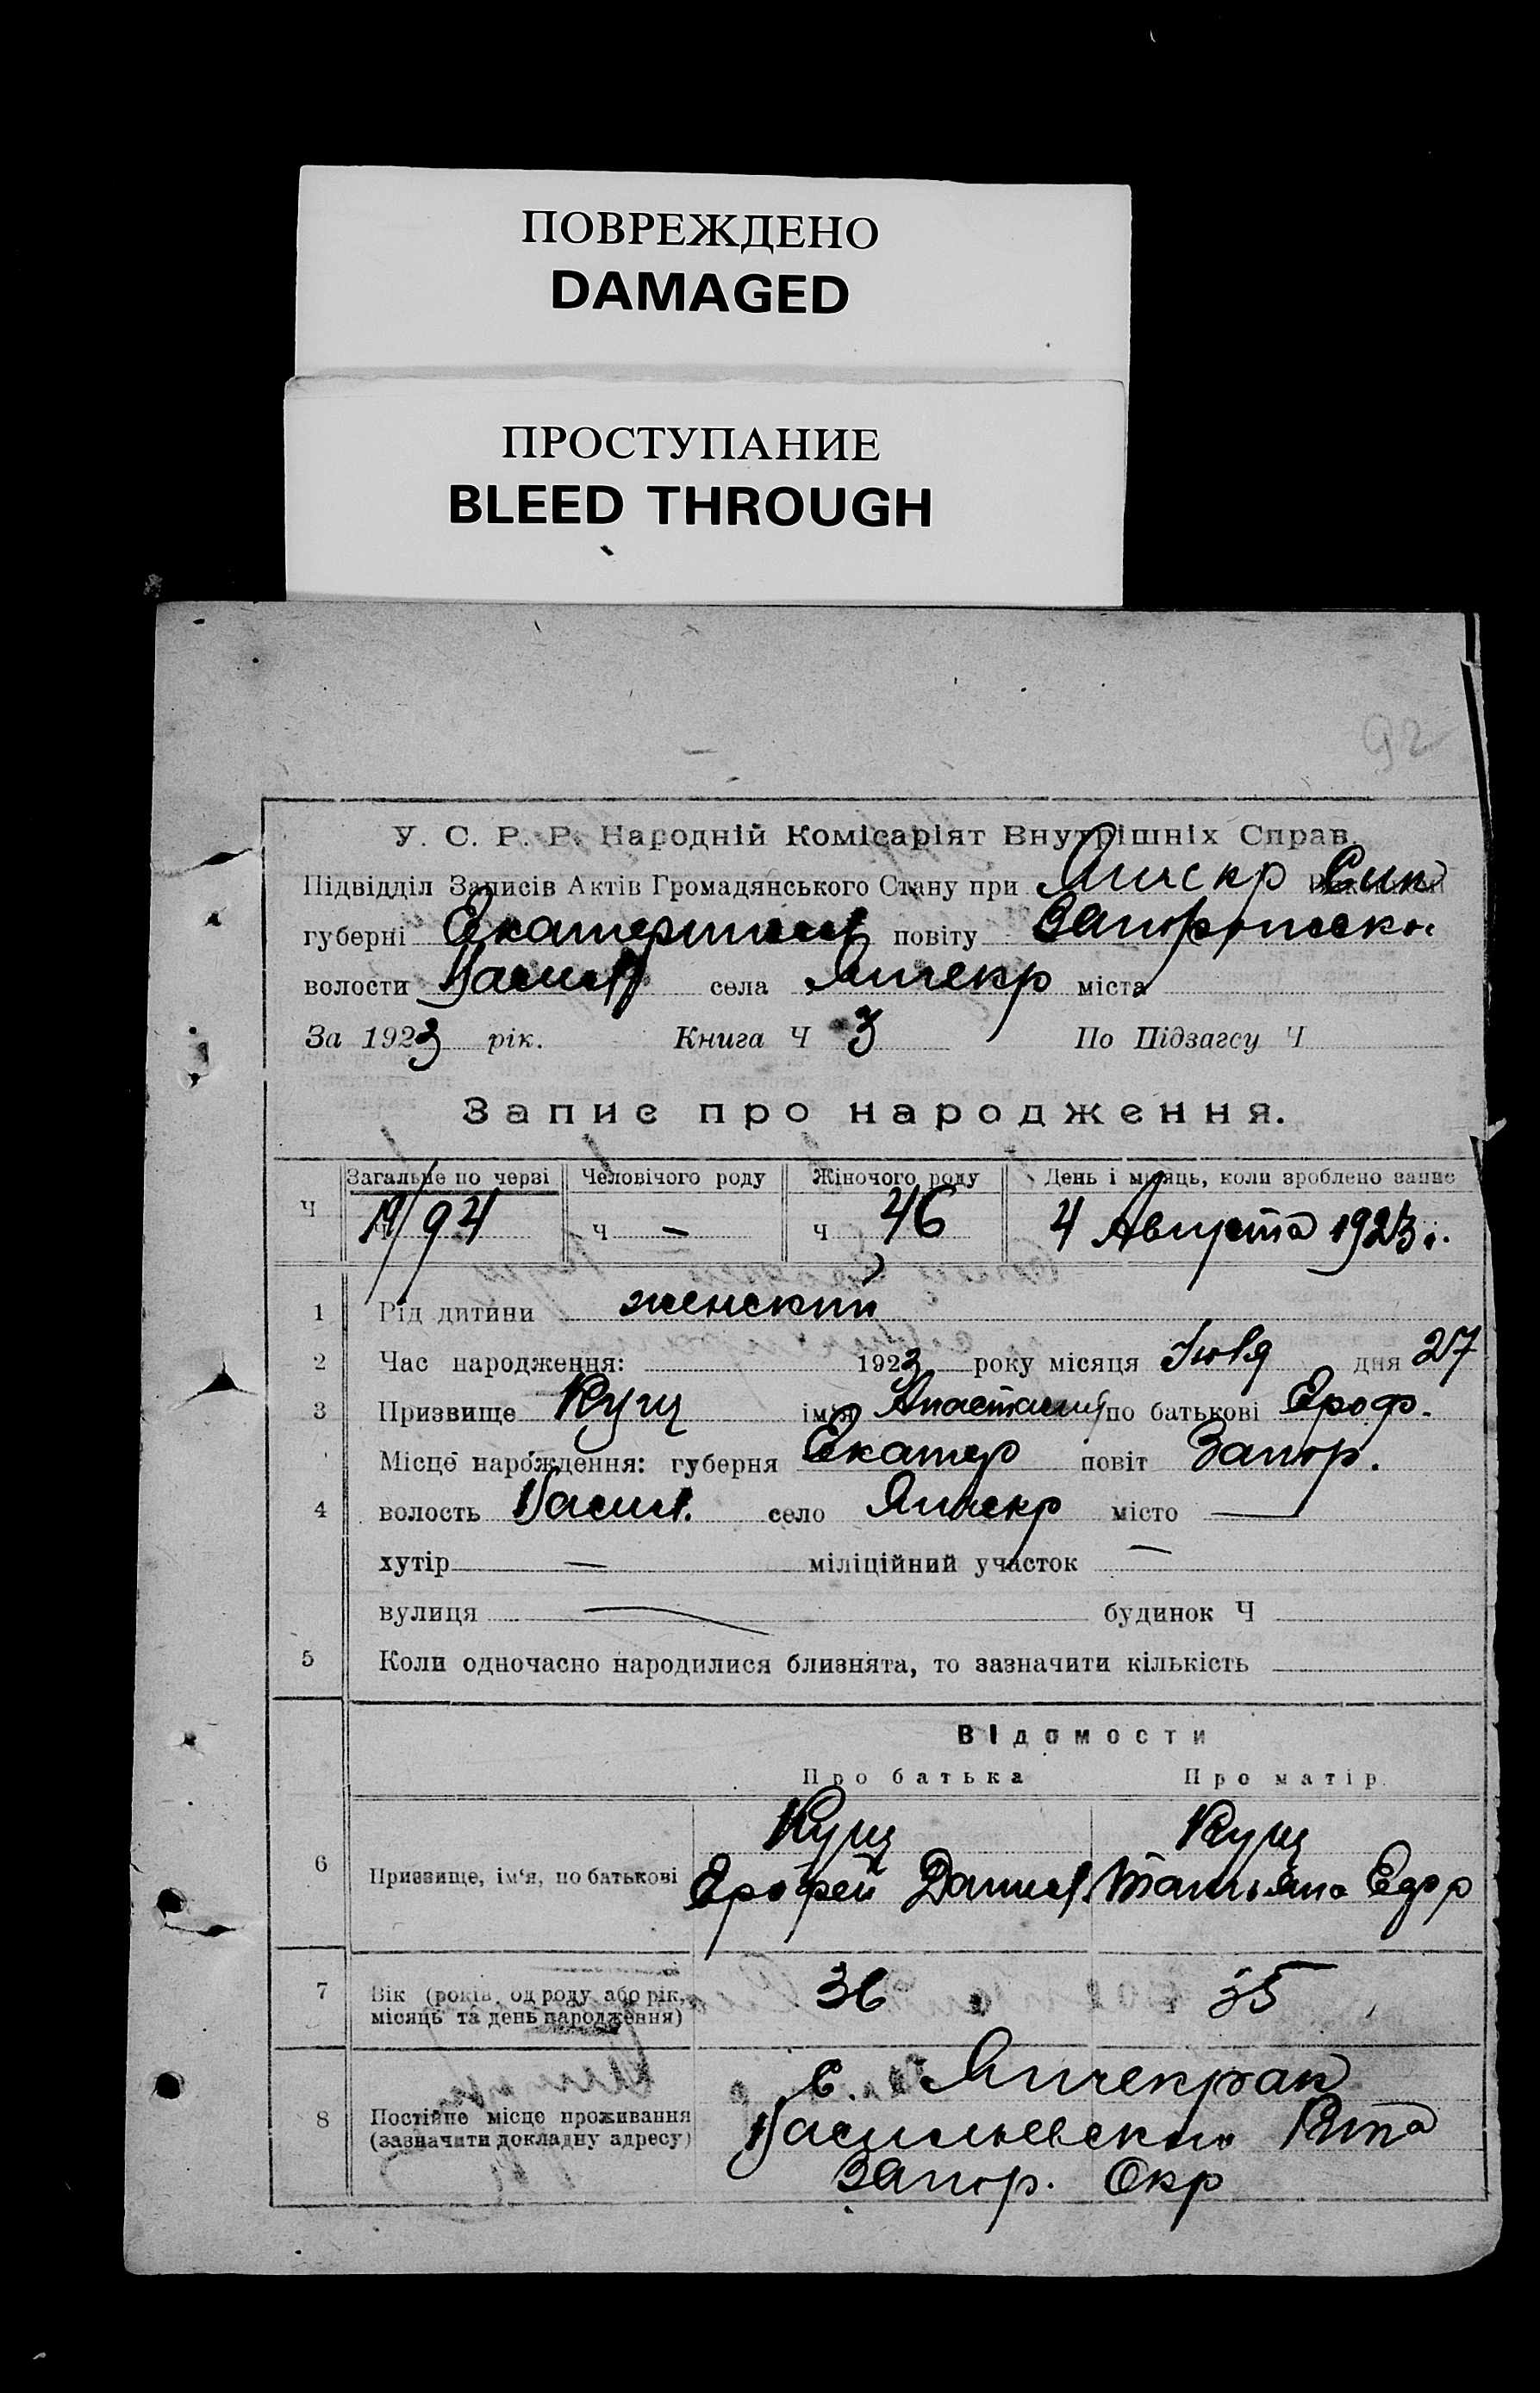 ПОВРЕЖДЕНО
DAMAGED
ПРОСТУПАНИЕ
BLEED THROUGH
92
У. С. Р. Р. Народній Комісаріят Внутрішніх Справ.
Підвідділ Записів Актів Громадянського Стану при
губерні повіту
волости Васил села Янчекр міста
За 1923 рік. Книга Ч 3 По Підзагсу Ч
Запис про народження.
Загальне по черзі Человічого роду Жіночого роду День і місяць, коли зроблено запис
Ч 94 Ч — Ч 46 4 Августа 1923 г.
1 Рід дитини женский
2 Час народження: 1923 року місяця Июля дня 27
3 Призвище Куц ім'я Анастасия по батькові Ероф.
Місце народження: губерня Екатер повіт Запор.
4 волость Васил. село Янчекр місто —
хутір — міліційний участок —
вулиця — будинок Ч
5 Коли одночасно народилися близнята, то зазначити кількість
Відомости
Про батька Про матір
Куц Куц
6 Призвище, ім'я, по батькові Ерофей Данил Татьяна Федор
7 Вік (років од роду або рік, 36 35
місяць та день народження)
с. Янчекрак
8 Постійне місце проживання Васильевского
(зазначити докладну адресу)
Запор. Окр